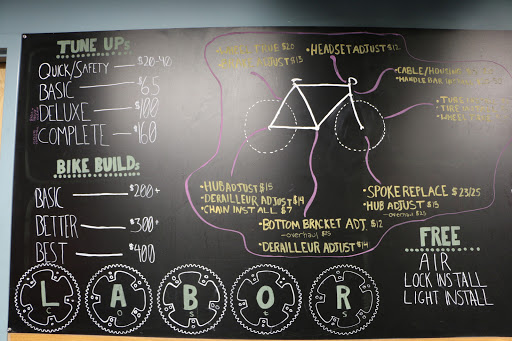 TUNE UPs
QUICK/SAFETY — $20-40
BASIC — $65
DELUXE — $100
COMPLETE — $160
BIKE BUILDs
BASIC — $200+
BETTER — $300+
BEST — $400
TRUE $20
ADJUST $13
• HEADSET ADJUST $12
• CABLE/HOUSING
• HANDLE BAR
• TUBE
• TIRE
• WHEEL
• HUB ADJUST $15
• DERAILLEUR ADJUST $14
• CHAIN INSTALL $7
• BOTTOM BRACKET ADJ. $12
-overhaul $25
• DERAILLEUR ADJUST $14
• SPOKE REPLACE $23/25
• HUB ADJUST $15
-overhaul $25
FREE
AIR
LOCK INSTALL
LIGHT INSTALL
L A B O R
C O S t S